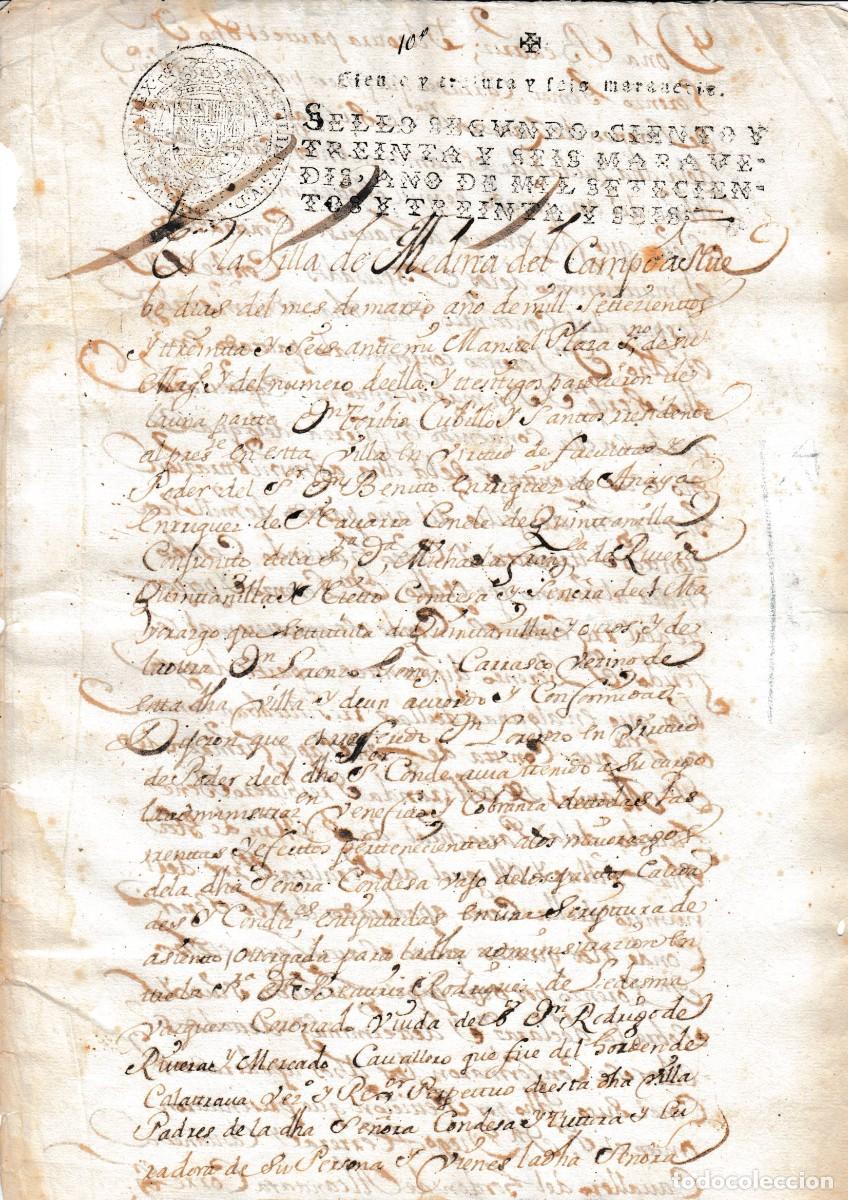 10º
Ciento y treinta y seis marauedis.
SELLO SEGVNDO, CIENTO Y
TREINTA Y SEIS MARAVE-
DIS, AÑO DE MIL SETECIEN-
TOS Y TREINTA Y SEIS.
En la Villa de Medina del Campo a Nue
be dias del mes de marzo año de mill Settezientos
Y ttreinta y Seis antte mi Manuel Plaza
Magd y del numero de ella y testigos parezieron de
la una partte Dn Toribio Cubillo y Santtos rresidente
al presste en estta Villa en Virtud de facultad y
Poder del Sr Dn Benitto Enrriquez de Anaya
Enrriquez de Navarra Conde de Quinttanilla
Conjunto de la Sra Da Michaela de Rivera
Quinttanilla y Nietto Condesa y Señora del Ma
iorazgo que se tittula de Quinttanilla y ottros, y de
la otra Dn Lorenzo Gomez Carrasco Vezino de
estta dha Villa y de un acuerdo y Conformidad
Dijeron que el rreferido Dn Lorenzo en Virtud
de Poder del dho Sr Conde avia ttenido a su cargo
la administrazn Veneficio y Cobranza de ttodas las
rrenttas y efecttos perttenecienttes a los maiorazgos
de la dha Señora Condesa vajo de los pacttos Calida
des y Condizes estipuladas en una Scripttura de
asientto ottorgada para la dha administtrazion en
ttre la Sra Da Beatriz Rodriguez de Ledesma
Vazquez Coronado Viuda del Sr Dn Rodrigo de
Rivera y Mercado Cavallero que fue del horden de
Calatrava Vezo y Rexor Perpettuo de esta dha Villa
Padres de la dha Señora Condesa y Tuttora y Cu
radora de Su Persona y Vienes la dha Señora
todocoleccion